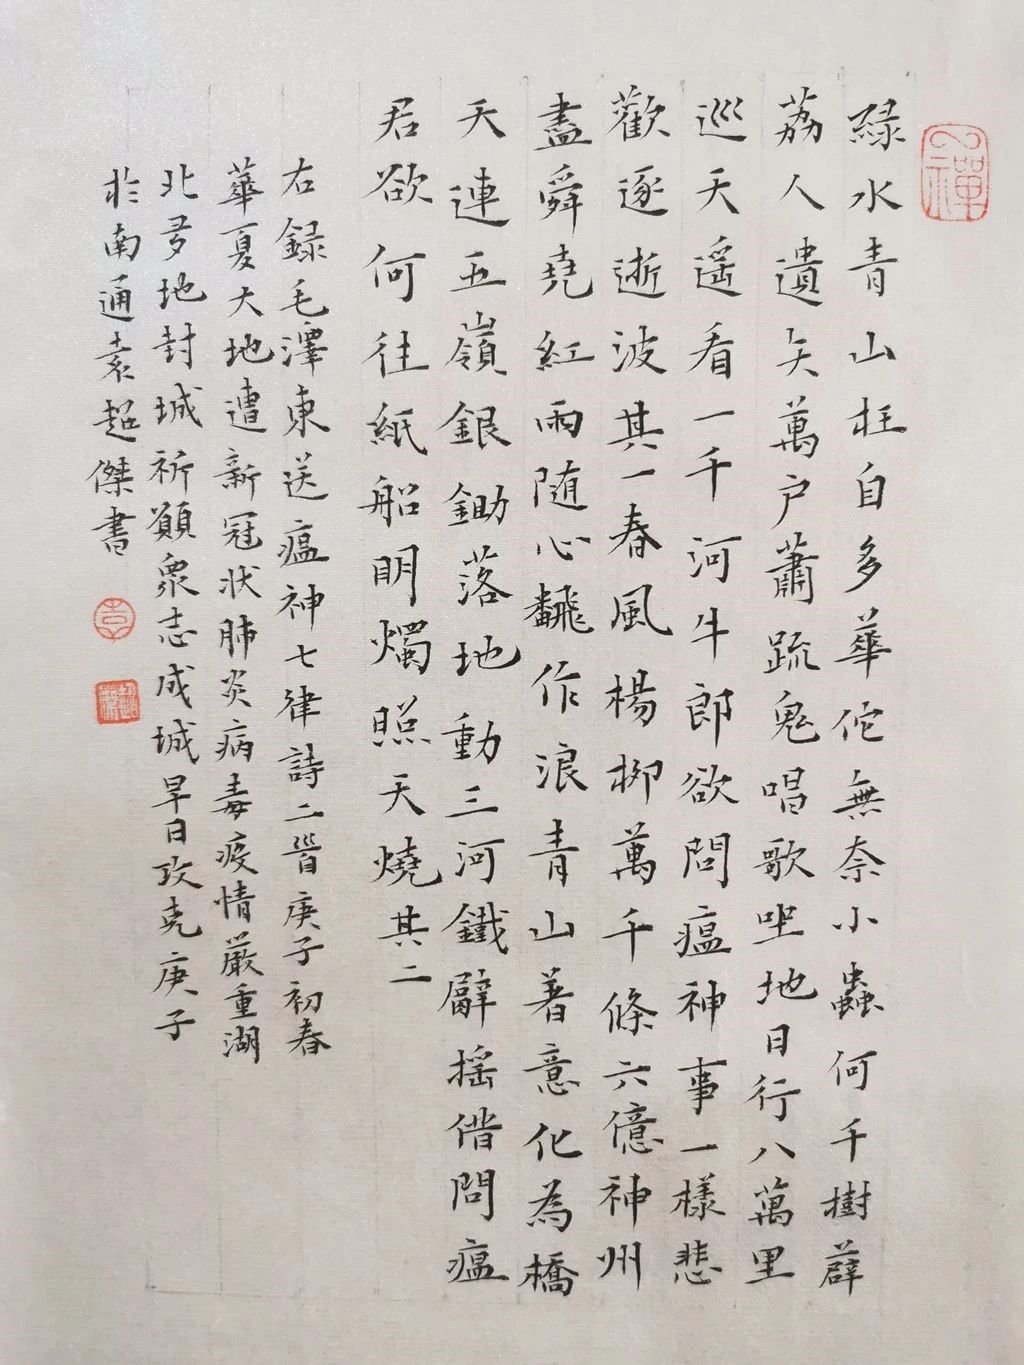 綠水青山枉自多華佗無奈小蟲何千樹薜
荔人遺矢萬户蕭疏鬼唱歌坐地日行八萬里
巡天遥看一千河牛郎欲問瘟神事一樣悲
歡逐逝波其一春風楊柳萬千條六億神州
盡舜堯紅雨随心飜作浪青山著意化為橋
天連五嶺銀鋤落地動三河鐵臂摇借問瘟
君欲何往紙船明燭照天燒其二
右録毛澤東送瘟神七律詩二首庚子初春
華夏大地遭新冠狀肺炎病毒疫情嚴重湖
北多地封城祈願衆志成城早日攻克庚子
於南通袁超傑書